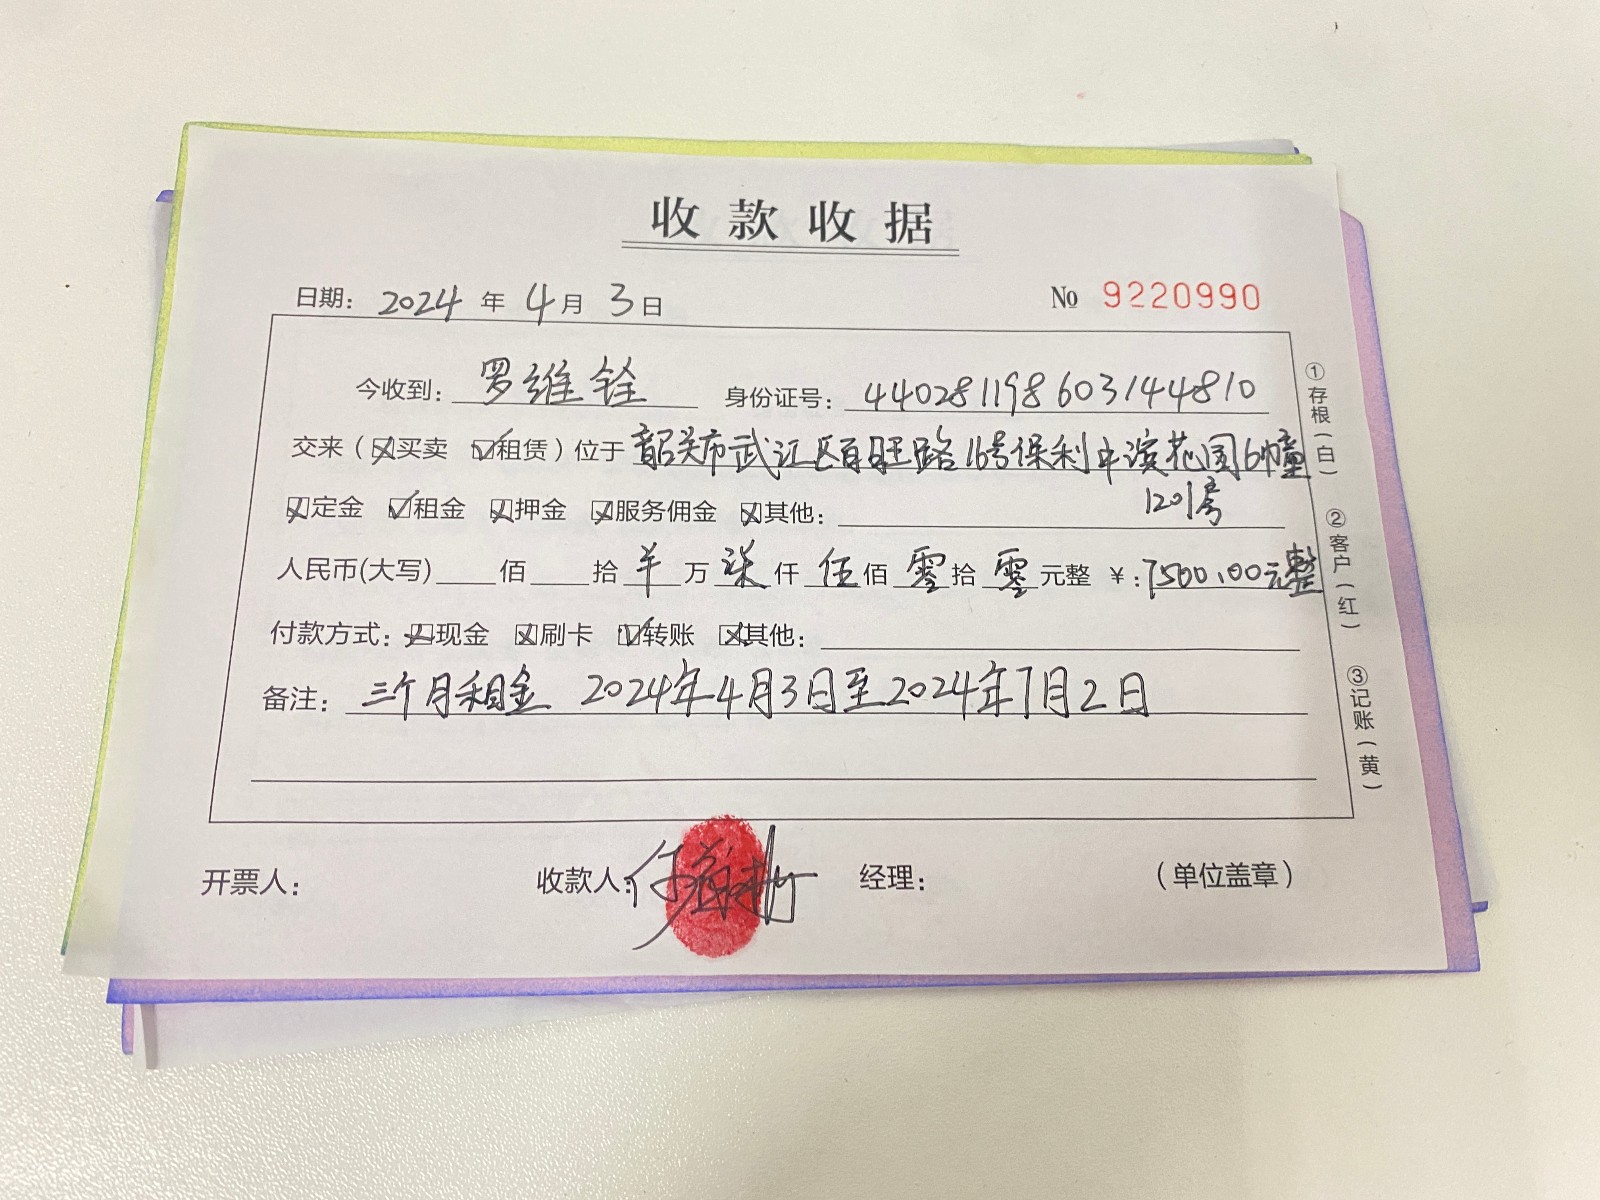 收款收据
日期： 2024 年 4 月 3 日 № 9220990
今收到： 罗维铨 身份证号： 440281198603144810
交来（☒买卖 ☑租赁）位于 韶关市武江区百旺路16号保利中滨花园6幢
1201号
☒定金 ☑租金 ☒押金 ☒服务佣金 ☒其他：
人民币(大写) 佰 拾 羊 万 柒 仟 伍 佰 零 拾 零 元整 ¥：7500.00元整
付款方式：☒现金 ☒刷卡 ☑转账 ☒其他：
备注： 三个月租金 2024年4月3日至2024年7月2日
开票人： 收款人： 经理： （单位盖章）
①存根（白）
②客户（红）
③记账（黄）